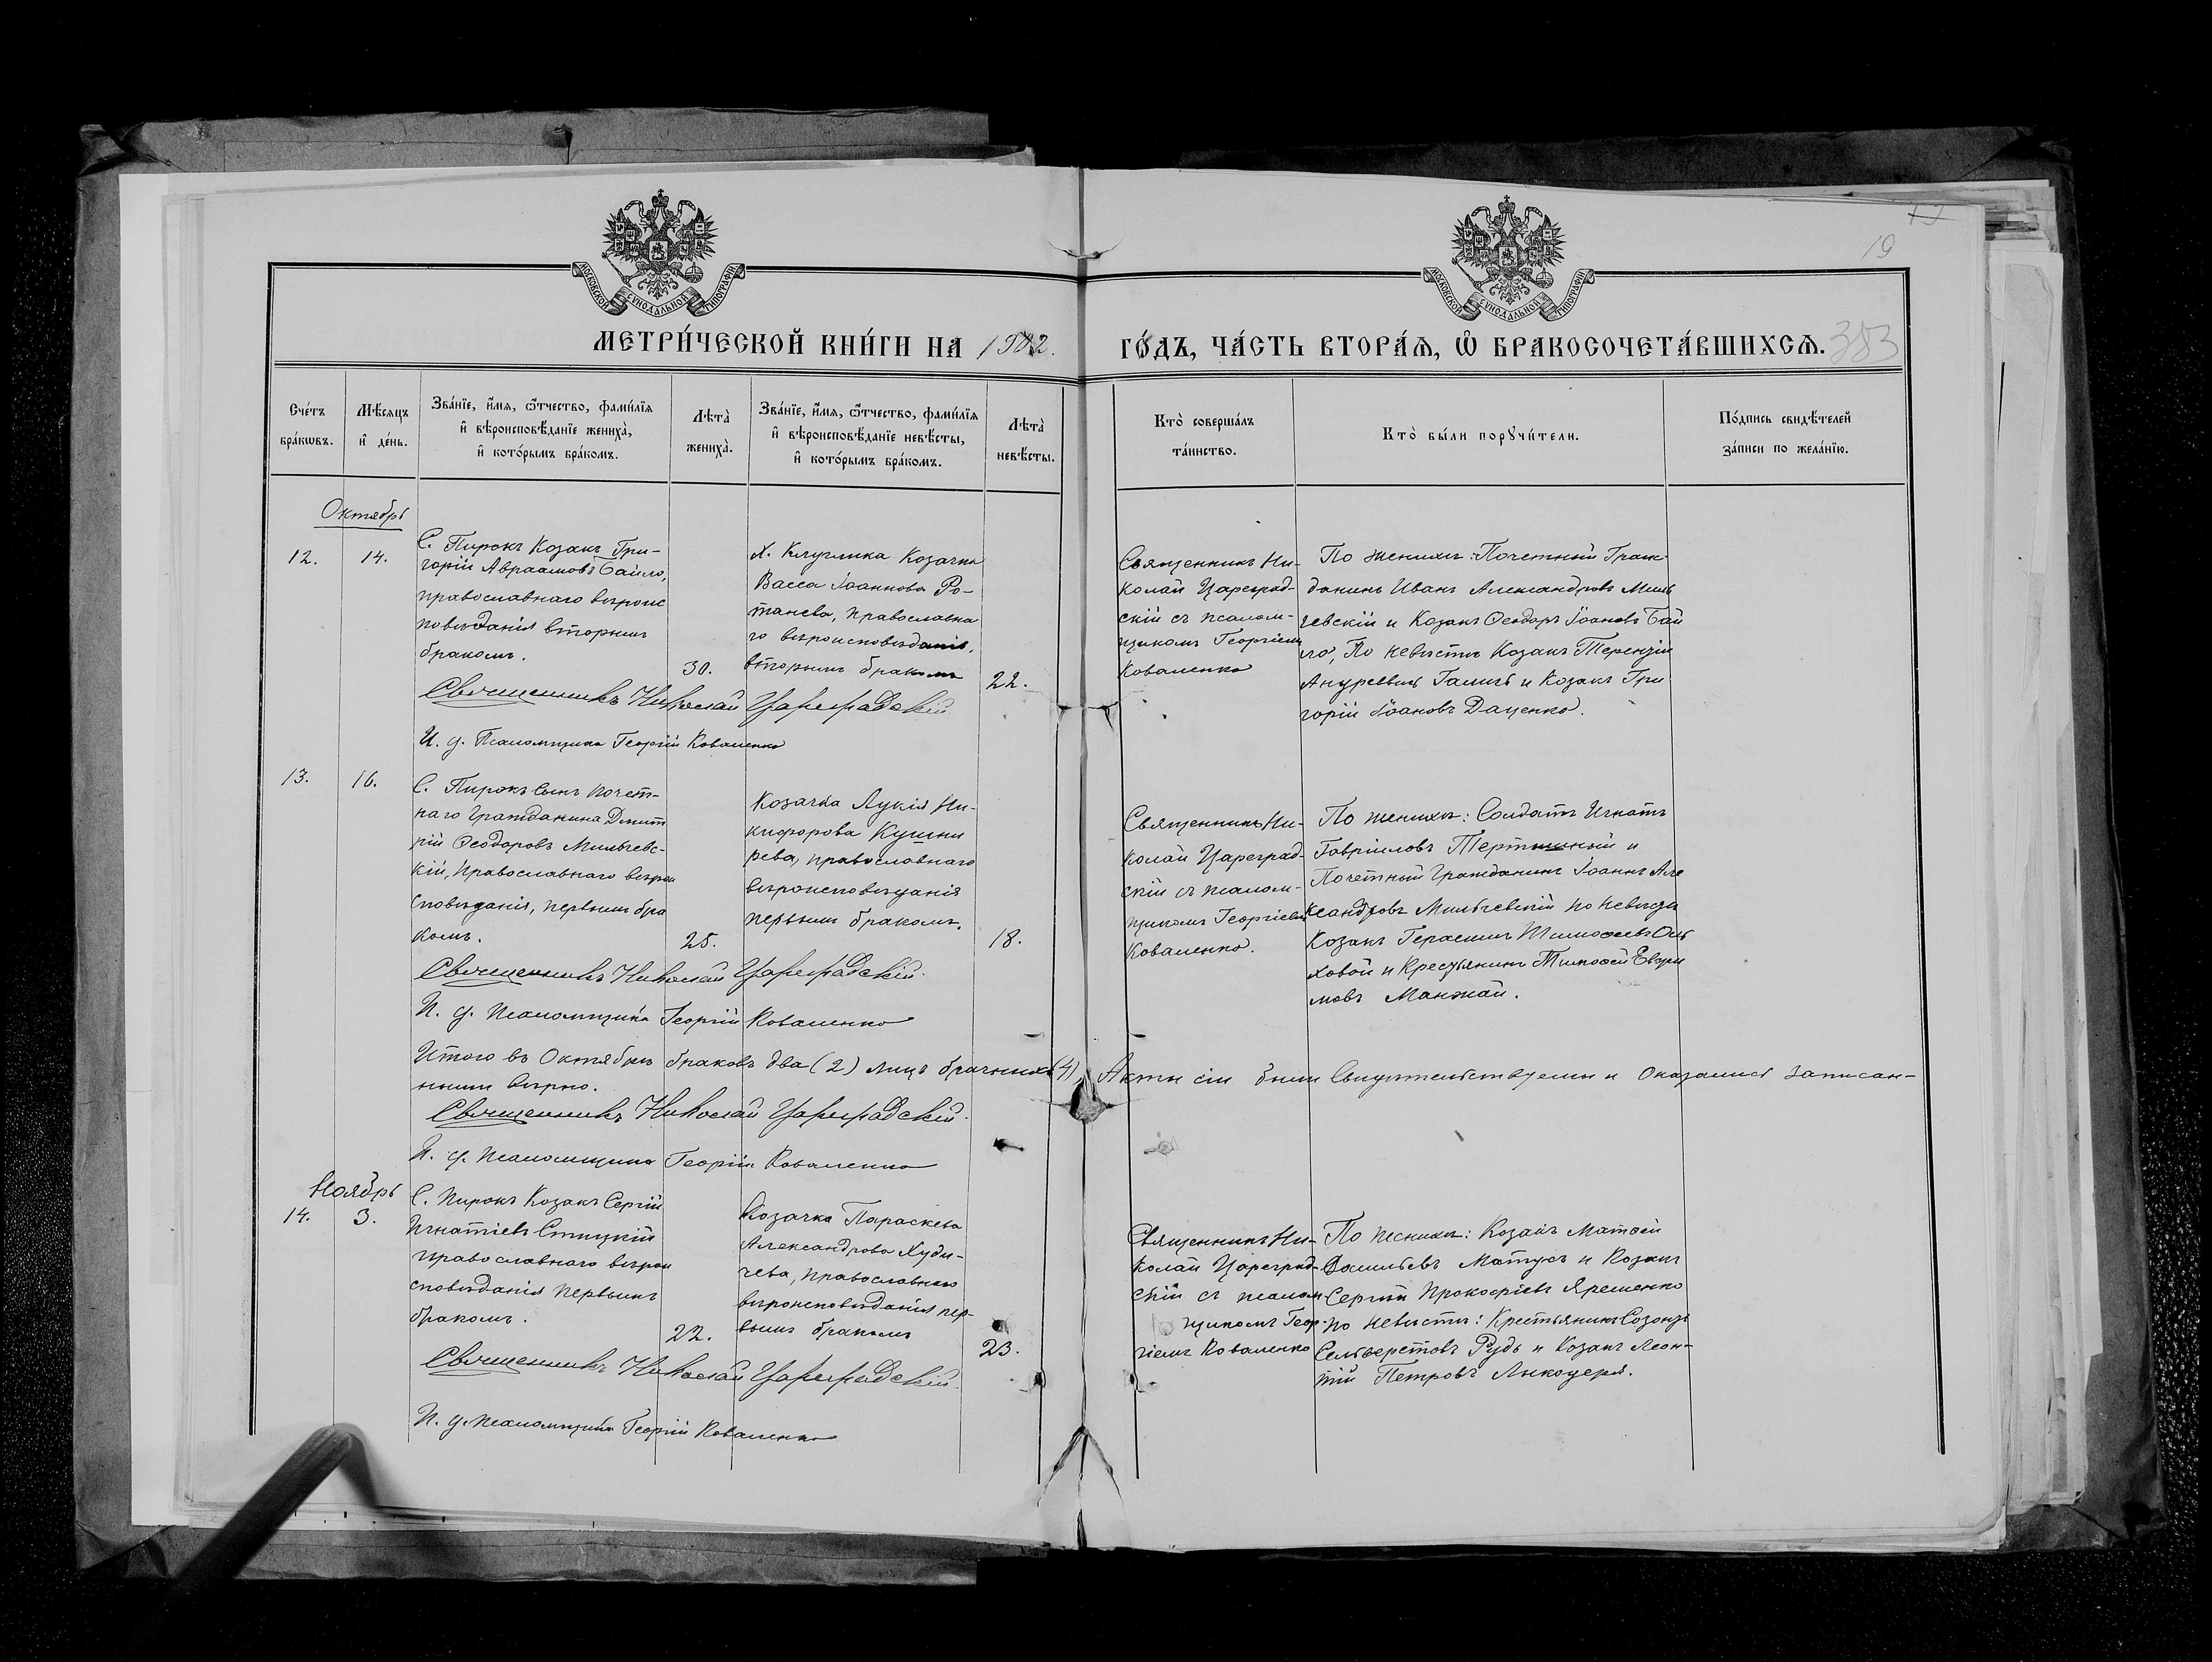 19
МОСКОВСКОЙ СУНОДАЛЬНОЙ ТИПОГРАФІИ
МОСКОВСКОЙ СУНОДАЛЬНОЙ ТИПОГРАФІИ
МЕТРИ́ЧЕСКОЙ КНИ́ГИ НА 1902.
ГО́ДЪ, ЧА́СТЬ ВТОРА́Ѧ, Ѽ БРАКОСОЧЕТА́ВШИХСѦ. 383
Сче́тъ
бра́кѡвъ.
Мѣ́сѧцъ
и҆ де́нь.
Зва́нїе, и҆́мѧ, ѻ҆́тчество, фами́лїѧ
и҆ вѣроисповѣ́данїе жениха̀,
и҆ кото́рымъ бра́комъ.
Лѣта̀
жениха̀.
Зва́нїе, и҆́мѧ, ѻ҆́тчество, фами́лїѧ
и҆ вѣроисповѣ́данїе невѣ́сты,
и҆ кото́рымъ бра́комъ.
Лѣта̀
невѣ́сты.
Кто̀ соверша́лъ
та́инство.
Кто̀ бы́ли порꙋчи́тели.
По́дпись свидѣ́телей
за́писи по жела́нїю.
Октябрь
12.
14.
С. Пирокъ Козакъ Гри-
горій Авраамовъ Байло,
православнаго вѣроис
повѣданія вторымъ
бракомъ.
30.
Х. Круглика Козачка
Васса Іоаннова Ро-
танева, православна
го вѣроисповѣданія,
вторымъ бракомъ
22.
Священникъ Ни-
колай Цареград-
скій съ псалом-
щикомъ Георгіемъ
Коваленко
По женихѣ: Почетный Граж-
данинъ Иванъ Александровъ Миль
чевскій и Козакъ Ѳеодоръ Іоановъ Бай
ло, По невѣстѣ Козакъ Терентій
Андреевъ Галичъ и Козакъ Гри
горій Іоановъ Даценко.
Священникъ Николай Цареградскій
И. д. Псаломщика Георгій Коваленко
13.
16.
С. Пирокъ Сынъ почет-
наго Гражданина Дмит
рій Ѳеодоровъ Мильчевс-
кій, православнаго вѣрои
сповѣданія, первымъ бра
комъ.
25.
Козачка Лукія Ни-
кифорова Кушни
рева, православнаго
вѣроисповѣданія
первымъ бракомъ.
18.
Священникъ Ни-
колай Цареград-
скій съ псалом-
щикомъ Георгіемъ
Коваленко.
По женихѣ: Солдатъ Игнатъ
Гавріиловъ Тертышный и
Почетный Гражданинъ Іоаннъ Але
ксандровъ Мильчевскій по невѣстѣ
Козакъ Герасимъ Тимоѳеевъ Оль
ховой и Крестьянинъ Тимоѳей Евфи
мовъ Манжай.
Священникъ Николай Цареградскій.
И. д. псаломщика Георгій Коваленко
Итого въ Октябрѣ браковъ два (2) лицъ брачныхъ (4), Акты сіи были Свидѣтельствуемы и Оказались Записан-
ными вѣрно.
Священникъ Николай Цареградскій.
И. д. псаломщика Георгій Коваленко
Ноябрь
14.
3.
С. Пирокъ Козакъ Сергій
Игнатіевъ
православнаго вѣрои
сповѣданія первымъ
бракомъ.
22.
Козачка Параскева
Александрова Худи-
чева, православнаго
вѣроисповѣданія пер-
вымъ бракомъ
23.
Священникъ Ни-
колай Цареград-
скій съ псалом
щикомъ Геор-
гіемъ Коваленко
По женихѣ: Козакъ Матѳей
Васильевъ Матусъ и Козакъ
Сергій Прокофіевъ Яременко
по невѣстѣ: Крестьянинъ Созонтъ
Сельверстовъ Рудь и Козакъ Леон-
тій Петровъ
Священникъ Николай Цареградскій.
И. д. псаломщика Георгій Коваленко